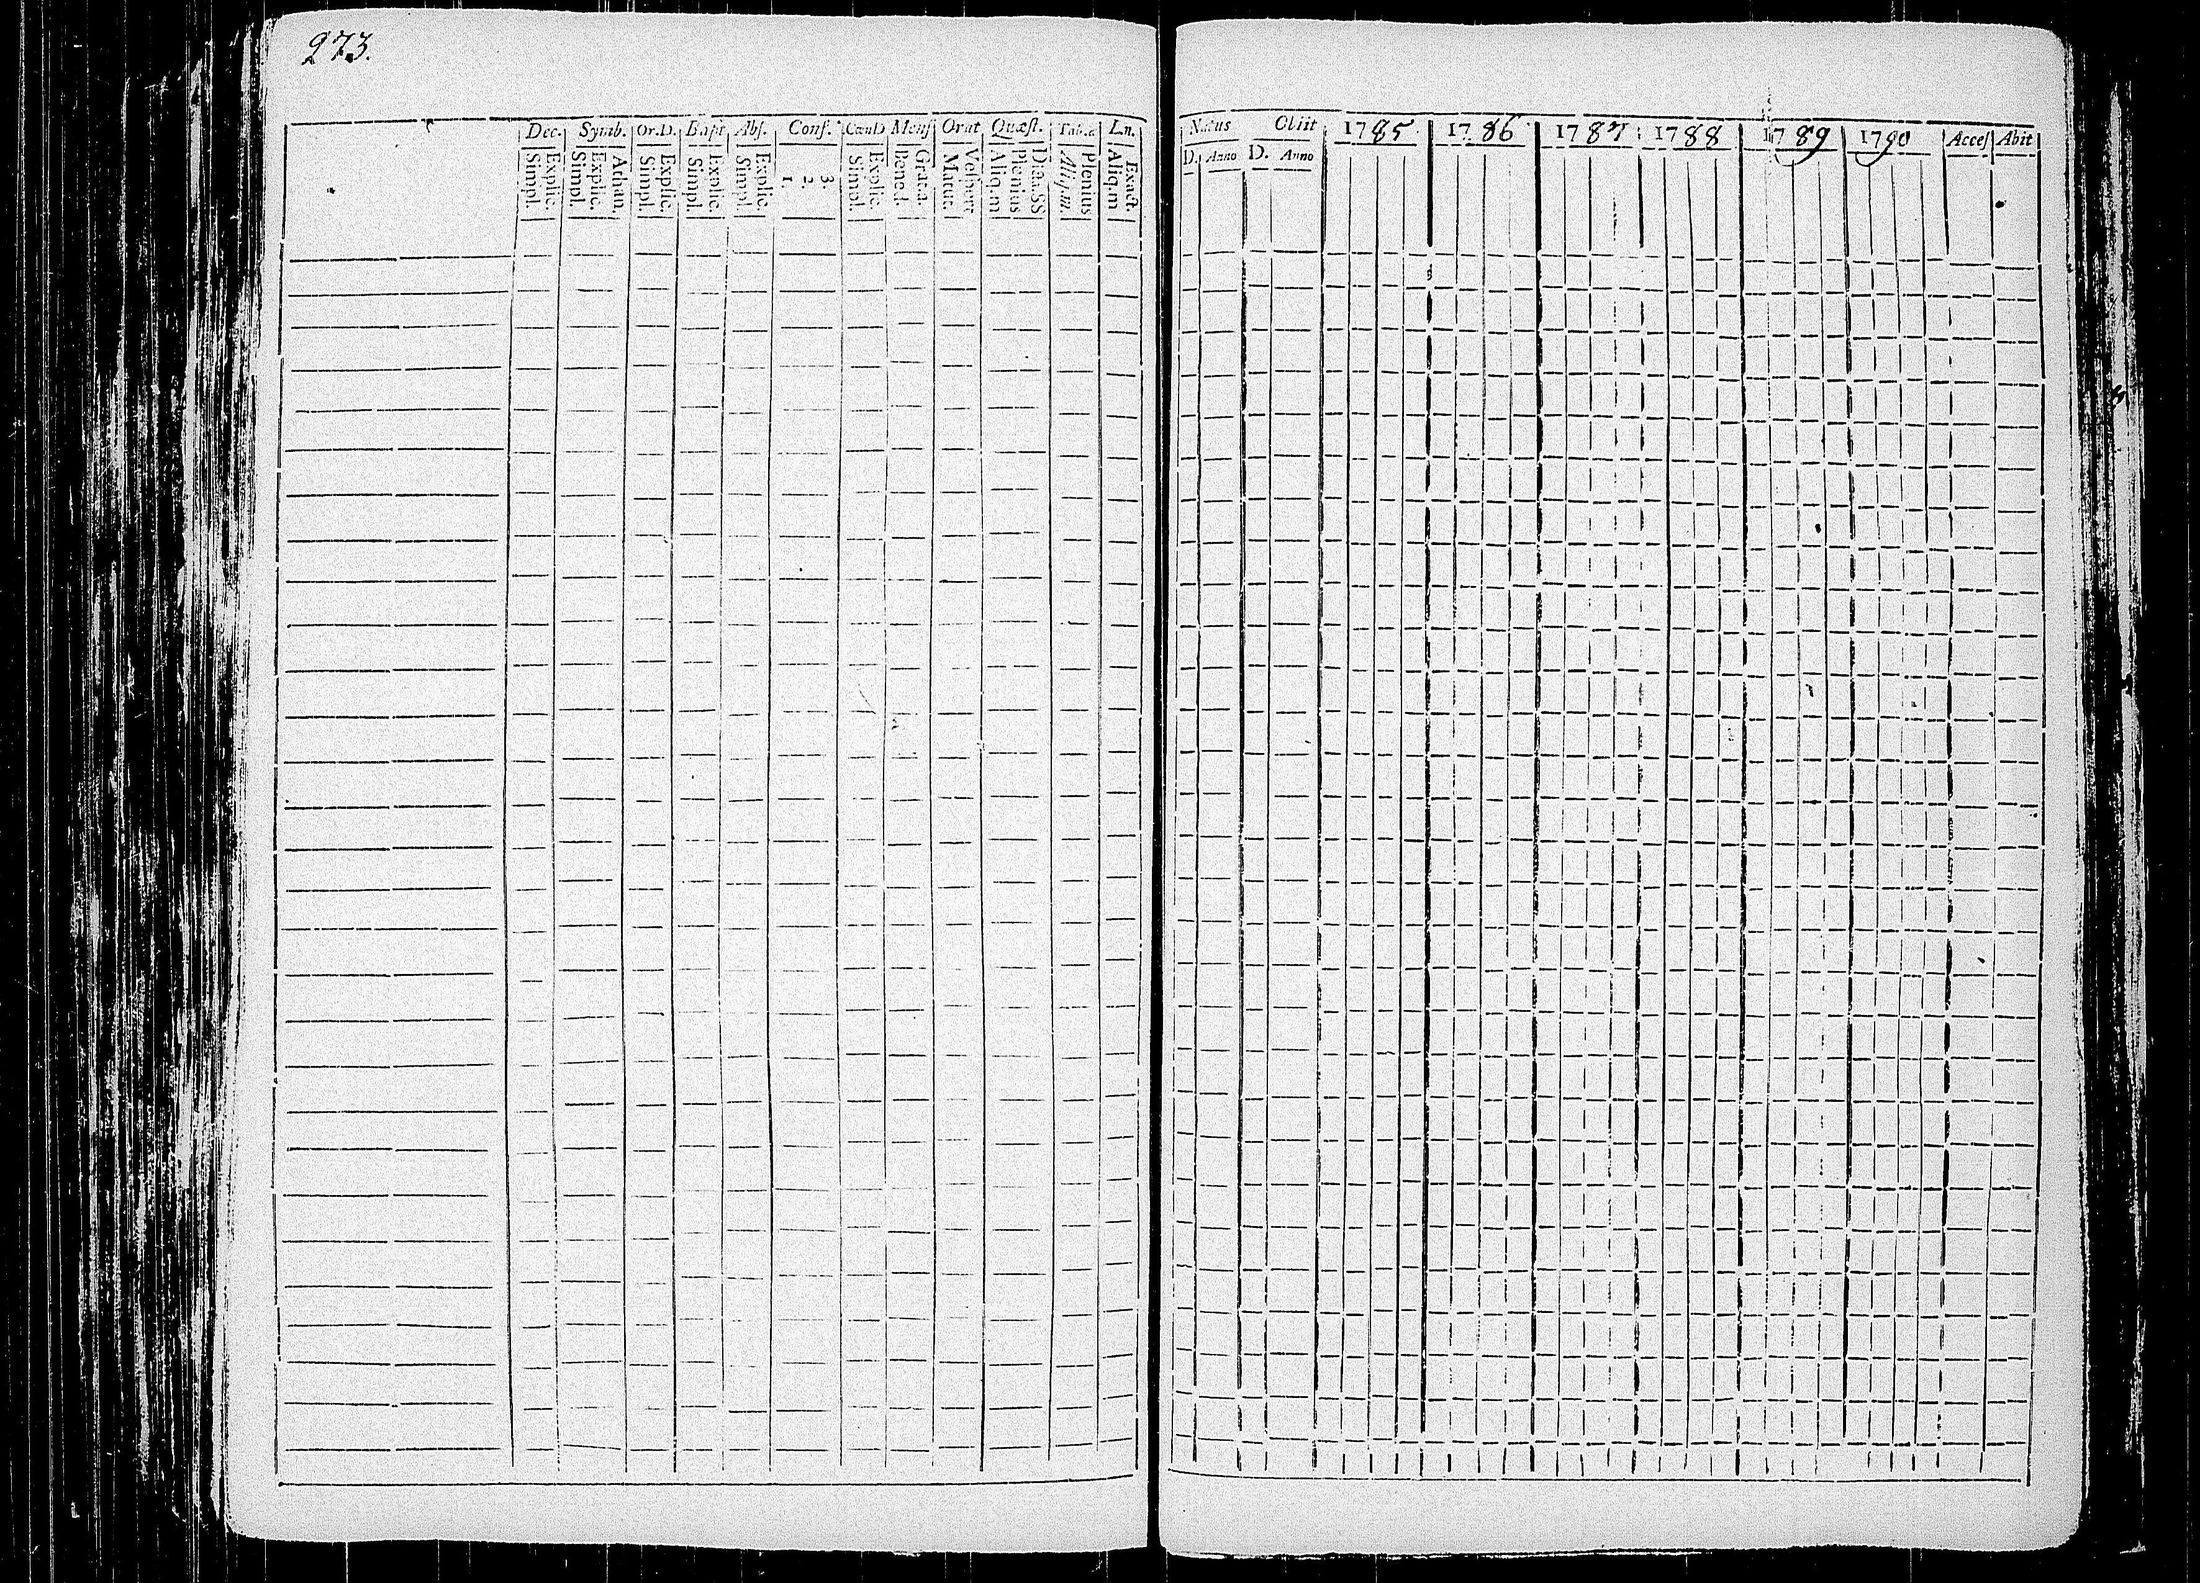 273.
Dec. Symb. Or.D. Bapt Abs. Conf. CœnD Mens Orat Quæst. Tabæ Ln.
Simpl. Explic. Simpl. Explic. Athan. Simpl. Explic. Simpl. Explic. Simpl. Explic. 1. 2. 3. Simpl. Explic. Bened. Grat.a. Matut. Vespert. Aliq.m Plenius Aliq.m. Plenius Aliq.m Exact.
Natus Obiit 1785 1786 1787 1788 1789 1790 Acces Abit
D. Anno D. Anno